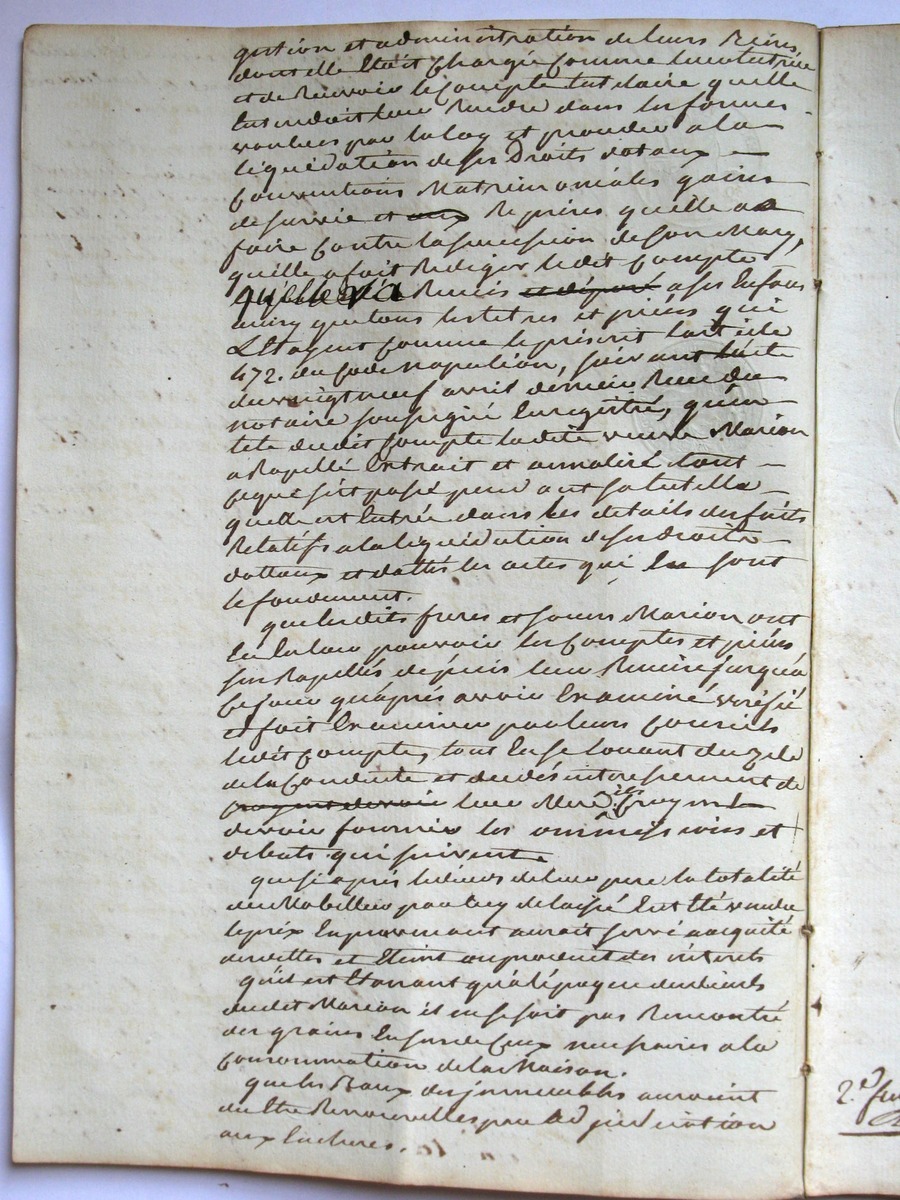 gestion et administration de leurs Biens
dont elle Etait Chargée Comme leur tutrice
et de Recevoir le Compte tutelaire qu'elle
entendoit leur Rendre dans les formes
voulues par la loy et proceder a la
liquidation de ses Droits dotaux
Conventions Matrimoniales gains
de survie et aux Reprises qu'elle a a
faire Contre la succession de son Mary,
qu'elle a fait Rediger ledit Compte
qu'elle a Remis et déposé a ses Enfans
ainsy que tous les titres et pièces qui
L'Etayent Comme le prescrit l'article
472. du Code napoléon, suivant l'acte
du vingt neuf avril dernier Recu du
notaire soussigné Enregistré, qu'en
tete dudit Compte ladite veuve Marion
a Rapellé Extrait et annalisé tout
ce que s'est passé pendant sa tutelle
qu'elle est Entrée dans les details des faits
Relatifs a la liquidation de ses droits
dottaux et dattés les actes qui En sont
le fondement.
que lesdits freres et soeurs Marion ont
Eu En leur pouvoir les Comptes et pièces
sus Rapellés depuis leur Remise jusqu'a
Ce jour qu'aprés avoir Examiné verifié
et fait Examiner par leurs Conseils
ledit Compte, tout En se louant du zele
de la Conduite et du desinteressement de
croyent devoir leur Mere ils Croyent
devoir fournir les ommissions et
debats qui suivent.
que si aprés le déces de leur pere la totalité
du Mobillier par luy delaissé Eut Eté vendu
le prix En provenant aurait servi a acquité
des dettes et Eteint ou produit des interets
qu'il est Etonnant qu'a l'époque du décés
dudit Marion il ne se soit pas Rencontré
des grains En sus de Ceux necessaires a la
Consommation de la Maison.
que les Baux des jmmeubles auroient
du Etre Renouvellés par adjudication
aux Encheres.
2.d